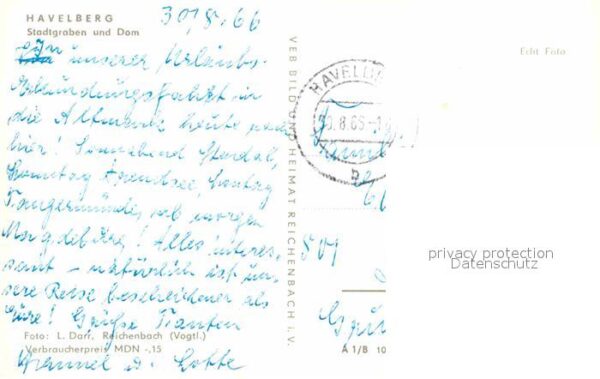 HAVELBERG
Stadtgraben und Dom
30.8.66
unserer Urlaubs-
Erkundungsfahrt in
die Altmark heute nach
hier! Sonnabend Stendal,
Sonntag Arendsee, Montag
Tangermünde, ab morgen
Magdeburg! Alles interes-
sant - natürlich ist un-
sere Reise bescheidener als
Eure! Grüße Tanten
u. Lotte
Foto: L. Darr, Reichenbach (Vogtl.)
Verbraucherpreis MDN -,15
VEB BILD UND HEIMAT REICHENBACH i. V.
Echt Foto
HAVELB
0.8.66-1
501
privacy protection
Datenschutz
A 1/B 10